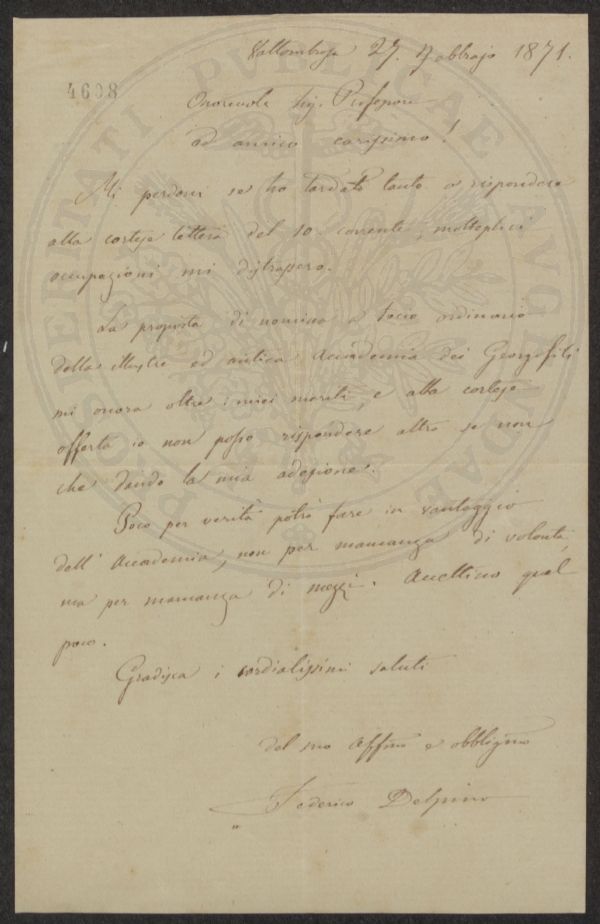 Vallombrosa 27. Febbrajo 1871.
4608
Onorevole Sig. Professore
ed amico carissimo!
Mi perdoni se ho tardato tanto a rispondere
alla cortese lettera del 10 corrente; molteplici
occupazioni mi distrassero.
La proposta di nomina a socio ordinario
della illustre ed antica Accademia dei Georgofili
mi onora oltre i miei meriti, e alla cortese
offerta io non posso rispondere altro se non
che dando la mia adesione.
Poco per verità potrò fare in vantaggio
dell' Accademia, non per mancanza di volontà
ma per mancanza di mezzi. Accettino quel
poco.
Gradisca i cordialissimi saluti
del suo affmo e obbligmo
Federico Delpino
PROSPERITATI PVBLICAE AVGENDAE